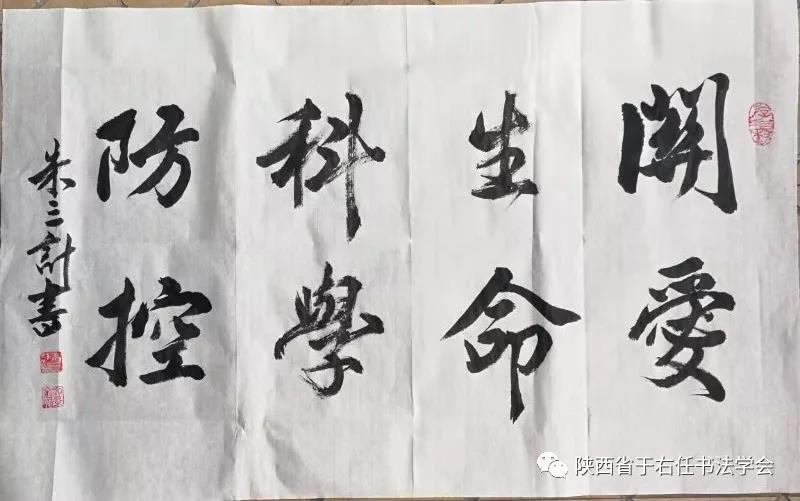 關愛
生命
科學
防控
朱三計書
陕西省于右任书法学会